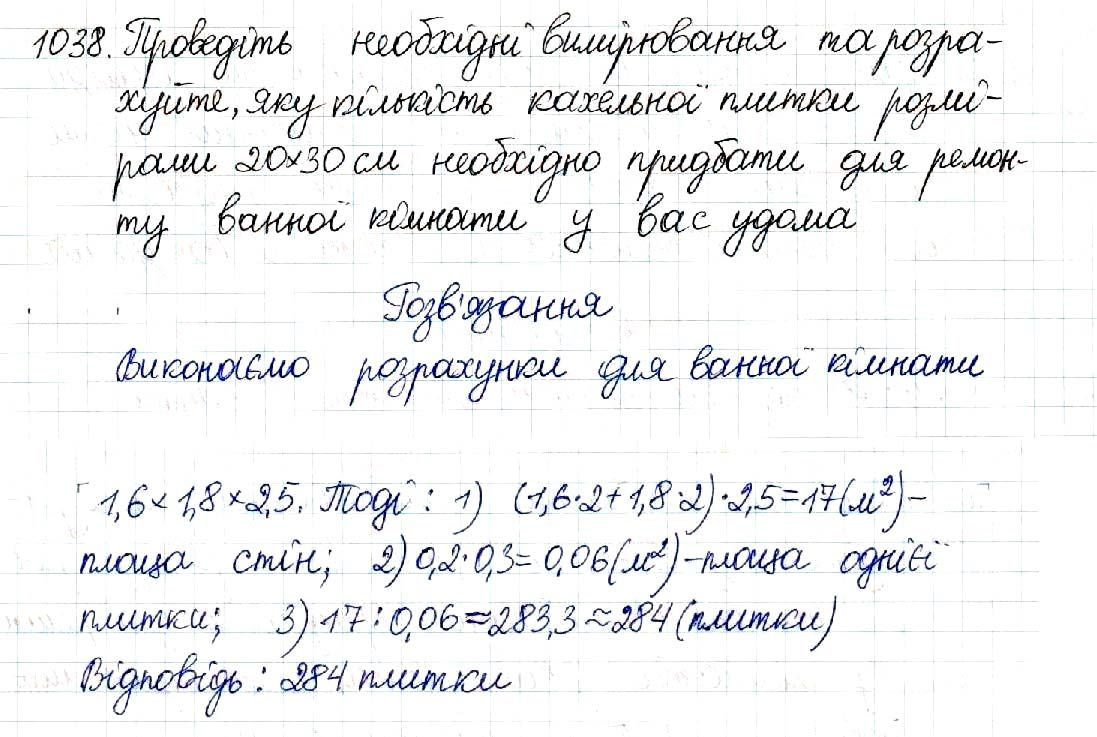 1038. Проведіть необхідні вимірювання та розра-
хуйте, яку кількість кахельної плитки розмі-
рами 20×30 см необхідно придбати для ремон-
ту ванної кімнати у вас удома
Розв'язання
Виконаємо розрахунки для ванної кімнати
1,6×1,8×2,5. Тоді: 1) (1,6·2+1,8·2)·2,5=17(м²)–
площа стін; 2) 0,2·0,3=0,06(м²)–площа однієї
плитки; 3) 17:0,06≈283,3≈284(плитки)
Відповідь: 284 плитки